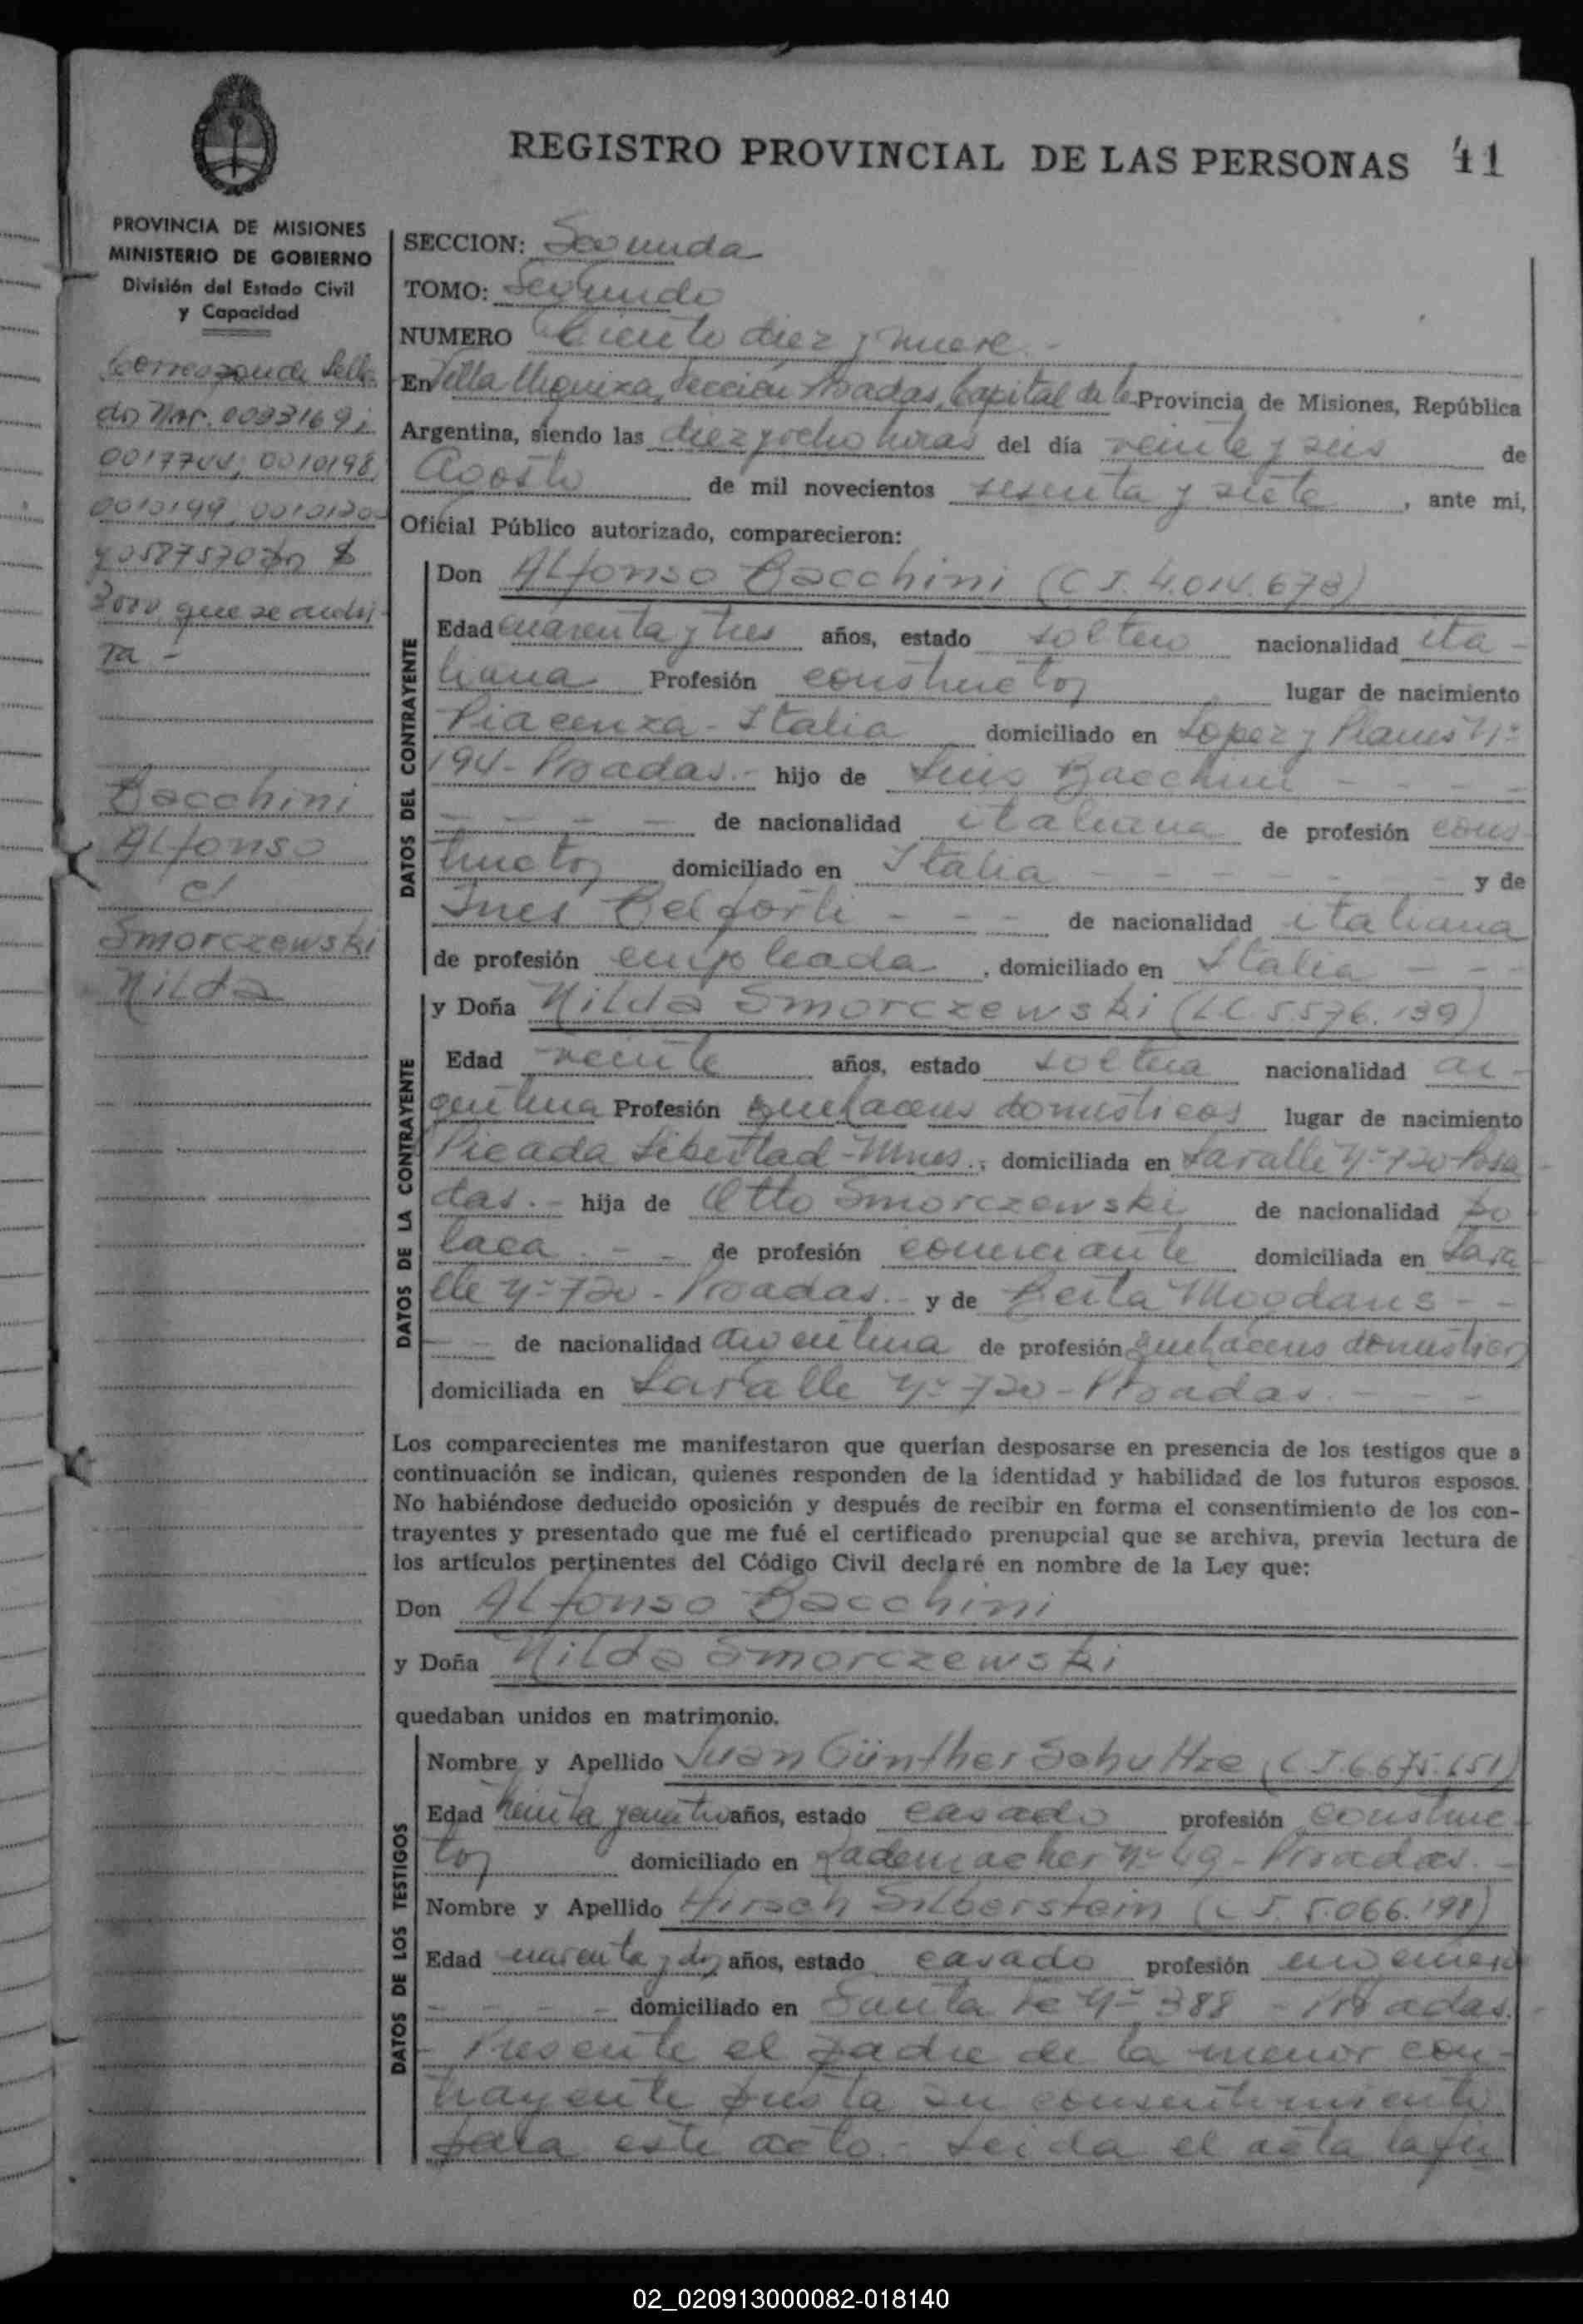 REGISTRO PROVINCIAL DE LAS PERSONAS 41
PROVINCIA DE MISIONES
MINISTERIO DE GOBIERNO
División del Estado Civil
y Capacidad
Corresponde Sella
dos Nos. 0093169;
0017700; 0010198
2000 que se archi
va -
Bacchini
Alfonso
c/
Smorczewski
Nilda
SECCION: Segunda
TOMO: Segundo
NUMERO Ciento diez y nueve -
En Villa Urquiza, Sección Posadas, Capital de la Provincia de Misiones, República
Argentina, siendo las diez y ocho horas del día veinte y seis de
Agosto de mil novecientos sesenta y siete, ante mi,
Oficial Público autorizado, comparecieron:
DATOS DEL CONTRAYENTE
Don Alfonso Bacchini (C I. 4.014.678)
Edad cuarenta y tres años, estado soltero nacionalidad ita-
liana Profesión constructor lugar de nacimiento
Piacenza - Italia domiciliado en Lopez y Planes Nº
194 - Posadas. - hijo de Luis Bacchini - - - -
- - - - de nacionalidad italiana de profesión cons
tructor domiciliado en Italia - - - - - - y de
Ines Belforti - - - de nacionalidad italiana
de profesión empleada, domiciliado en Italia - - -
DATOS DE LA CONTRAYENTE
y Doña Nilda Smorczewski (L.C. 5.576.139)
Edad veinte años, estado soltera nacionalidad ar-
gentina Profesión quehaceres domesticos lugar de nacimiento
Picada Libertad - Mnes., domiciliada en Lavalle Nº 720 - Posa-
das. - hija de Otto Smorczewski de nacionalidad po-
laca - - de profesión comerciante domiciliada en Lava-
lle Nº 720 - Posadas. - y de Berta Mogdans - -
- - de nacionalidad argentina de profesión quehaceres domesticos
domiciliada en Lavalle Nº 720 - Posadas. - - -
Los comparecientes me manifestaron que querían desposarse en presencia de los testigos que a
continuación se indican, quienes responden de la identidad y habilidad de los futuros esposos.
No habiéndose deducido oposición y después de recibir en forma el consentimiento de los con-
trayentes y presentado que me fué el certificado prenupcial que se archiva, previa lectura de
los artículos pertinentes del Código Civil declaré en nombre de la Ley que:
Don Alfonso Bacchini
y Doña Nilda Smorczewski
quedaban unidos en matrimonio.
DATOS DE LOS TESTIGOS
Nombre y Apellido Juan Günther Schultze (C I. 6.675.651)
Edad treinta y cuatro años, estado casado profesión construc-
tor domiciliado en Rademacher Nº 49 - Posadas. -
Nombre y Apellido Hirsch Silberstein (C I. 5.066.198)
Edad cuarenta y dos años, estado casado profesión ingeniero
- - - - domiciliado en Santa Fe Nº 388 - Posadas. -
- Presente el padre de la menor con-
trayente presta su consentimiento
para este acto. - Leida el acta la fir
02_020913000082-018140